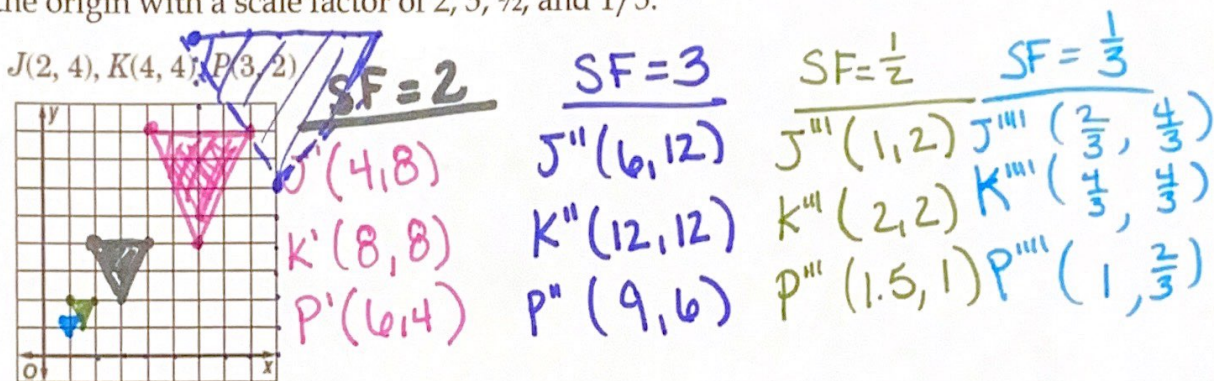 the origin with a scale factor of 2, 3, ½, and 1/3.
J(2, 4), K(4, 4), P(3, 2)
y
O
x
SF = 2
J'(4,8)
K'(8,8)
P'(6,4)
SF = 3
J"(6,12)
K"(12,12)
P"(9,6)
SF = 1/2
J'''(1,2)
K'''(2,2)
P'''(1.5,1)
SF = 1/3
J''''(2/3, 4/3)
K''''(4/3, 4/3)
P''''(1, 2/3)